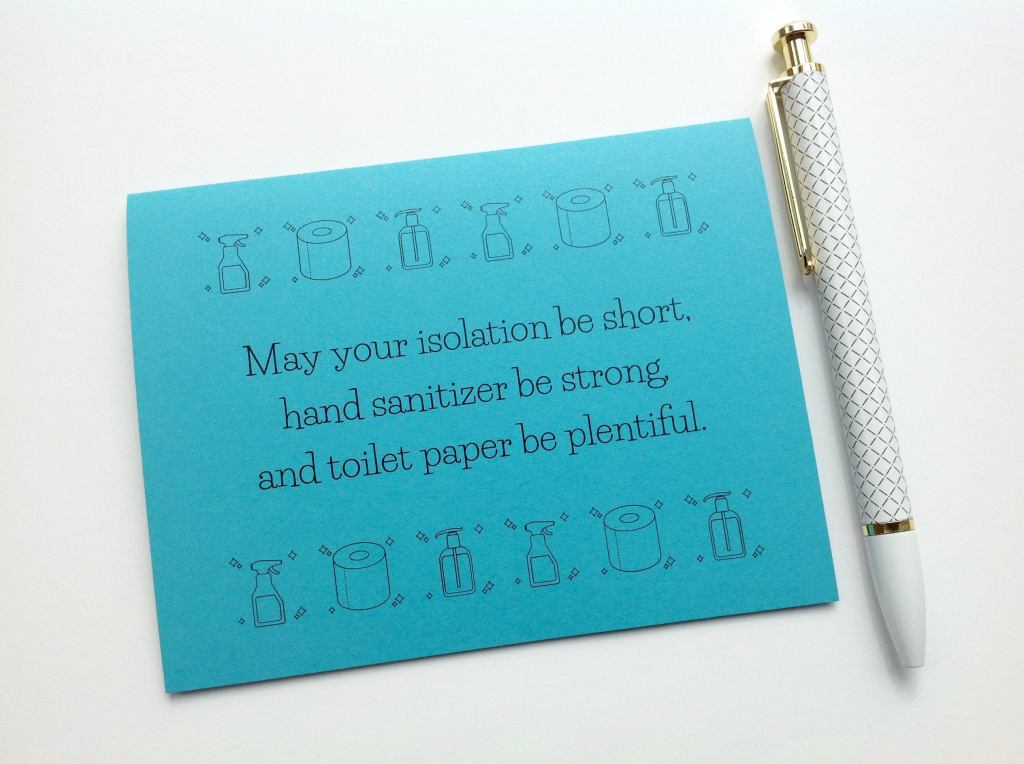 May your isolation be short,
hand sanitizer be strong,
and toilet paper be plentiful.